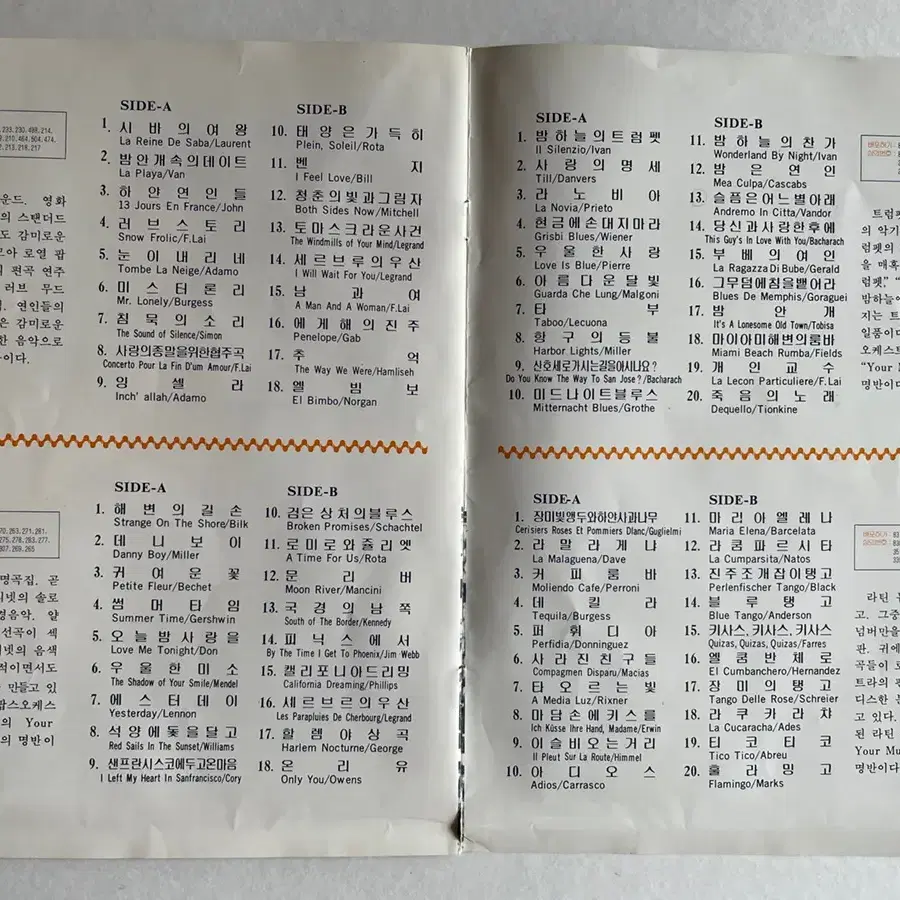 233.230.498.214.
210.464.504.474.
213.218.217
운드. 영화
의 스탠더드
도 감미로운
모아 로열 팝
의 편곡 연주
러브 무드
연인들의
은 감미로운
한 음악으로
이다.
SIDE-A
1. 시바의여왕
La Reine De Saba/Laurent
2. 밤안개속의데이트
La Playa/Van
3. 하얀연인들
13 Jours En France/John
4. 러브스토리
Snow Frolic/F.Lai
5. 눈이내리네
Tombe La Neige/Adamo
6. 미스터론리
Mr. Lonely/Burgess
7. 침묵의소리
The Sound of Silence/Simon
8. 사랑의종말을위한협주곡
Concerto Pour La Fin D'um Amour/F.Lai
9. 잉셀라
Inch' allah/Adamo
SIDE-B
10. 태양은가득히
Plein, Soleil/Rota
11. 벤지
I Feel Love/Bill
12. 청춘의빛과그림자
Both Sides Now/Mitchell
13. 토마스크라운사건
The Windmills of Your Mind/Legrand
14. 세르브루의우산
I Will Wait For You/Legrand
15. 남과여
A Man And A Woman/F.Lai
16. 에게해의진주
Penelope/Gab
17. 추억
The Way We Were/Hamliseh
18. 엘빔보
El Bimbo/Norgan
SIDE-A
1. 밤하늘의트럼펫
Il Silenzio/Ivan
2. 사랑의명세
Till/Danvers
3. 라노비아
La Novia/Prieto
4. 현금에손대지마라
Grisbi Blues/Wiener
5. 우울한사랑
Love Is Blue/Pierre
6. 아름다운달빛
Guarda Che Lung/Malgoni
7. 타부
Taboo/Lecuona
8. 항구의등불
Harbor Lights/Miller
9. 산호세로가시는길을아시나요?
Do You Know The Way To San Jose?/Bacharach
10. 미드나이트블루스
Mitternacht Blues/Grothe
SIDE-B
11. 밤하늘의찬가
Wonderland By Night/Ivan
12. 밤은연인
Mea Culpa/Cascabs
13. 슬픔은어느별아래
Andremo In Citta/Vandor
14. 당신과사랑한후에
This Guy's In Love With You/Bacharach
15. 부베의여인
La Ragazza Di Bube/Gerald
16. 그무덤에침을뱉어라
Blues De Memphis/Goraguei
17. 밤안개
It's A Lonesome Old Town/Tobisa
18. 마이아미해변의룸바
Miami Beach Rumba/Fields
19. 개인교수
La Lecon Particuliere/F.Lai
20. 죽음의노래
Dequello/Tionkine
트럼펫
의 악기
럼펫의
을 매혹
럼펫,"
밤하늘에
지는 트
일품이다
오케스트
"Your M
명반이다
70.263.271.281.
275.278.283.277.
807.269.265
명곡집. 곧
리넷의 솔로
경음악. 얄
선곡이 섹
리넷의 음색
적이면서도
만들고 있
팝스오케스
의 Your
의 명반이
SIDE-A
1. 해변의길손
Strange On The Shore/Bilk
2. 데니보이
Danny Boy/Miller
3. 커여운꽃
Petite Fleur/Bechet
4. 썸머타임
Summer Time/Gershwin
5. 오늘밤사랑을
Love Me Tonight/Don
6. 우울한미소
The Shadow of Your Smile/Mendel
7. 에스터데이
Yesterday/Lennon
8. 석양에돛을달고
Red Sails In The Sunset/Williams
9. 샌프란시스코에두고온마음
I Left My Heart In Sanfrancisco/Cory
SIDE-B
10. 검은상처의블루스
Broken Promises/Schachtel
11. 로미로와쥴리엣
A Time For Us/Rota
12. 문리버
Moon River/Mancini
13. 국경의남쪽
South of The Border/Kennedy
14. 피닉스에서
By The Time I Get To Phoenix/Jim·Webb
15. 캘리포니아드리밍
California Dreaming/Phillips
16. 세르브르의우산
Les Parapluies De Cherbourg/Legrand
17. 할렘야상곡
Harlem Nocturne/George
18. 온리유
Only You/Owens
SIDE-A
1. 장미빛앵두와하얀사과나무
Cerisiers Roses Et Pommiers Dlanc/Guglielmi
2. 라말라게나
La Malaguena/Dave
3. 커피룸바
Moliendo Cafe/Perroni
4. 데킬라
Tequila/Burgess
5. 퍼휘디아
Perfidia/Donninguez
6. 사라진친구들
Compagmen Disparu/Macias
7. 타오르는빛
A Media Luz/Rixner
8. 마담손에키스를
Ich Küsse Ihre Hand, Madame/Erwin
9. 이슬비오는거리
Il Pleut Sur La Route/Himmel
10. 아디오스
Adios/Carrasco
SIDE-B
11. 마리아엘레나
Maria Elena/Barcelata
12. 라쿰파르시타
La Cumparsita/Natos
13. 진주조개잡이탱고
Perlenfischer Tango/Black
14. 블루탱고
Blue Tango/Anderson
15. 키사스, 키사스, 키사스
Quizas, Quizas, Quizas/Farres
16. 엘쿰반체로
El Cumbanchero/Hernandez
17. 장미의탱고
Tango Delle Rose/Schreier
18. 라쿠카라차
La Cucaracha/Ades
19. 티코티코
Tico Tico/Abreu
20. 훌라밍고
Flamingo/Marks
라틴
고. 그중
넘버만을
판. 귀에
곡들이 로
트라의 편
디스한 분
고 있다.
된 라틴
Your Mu
명반이다